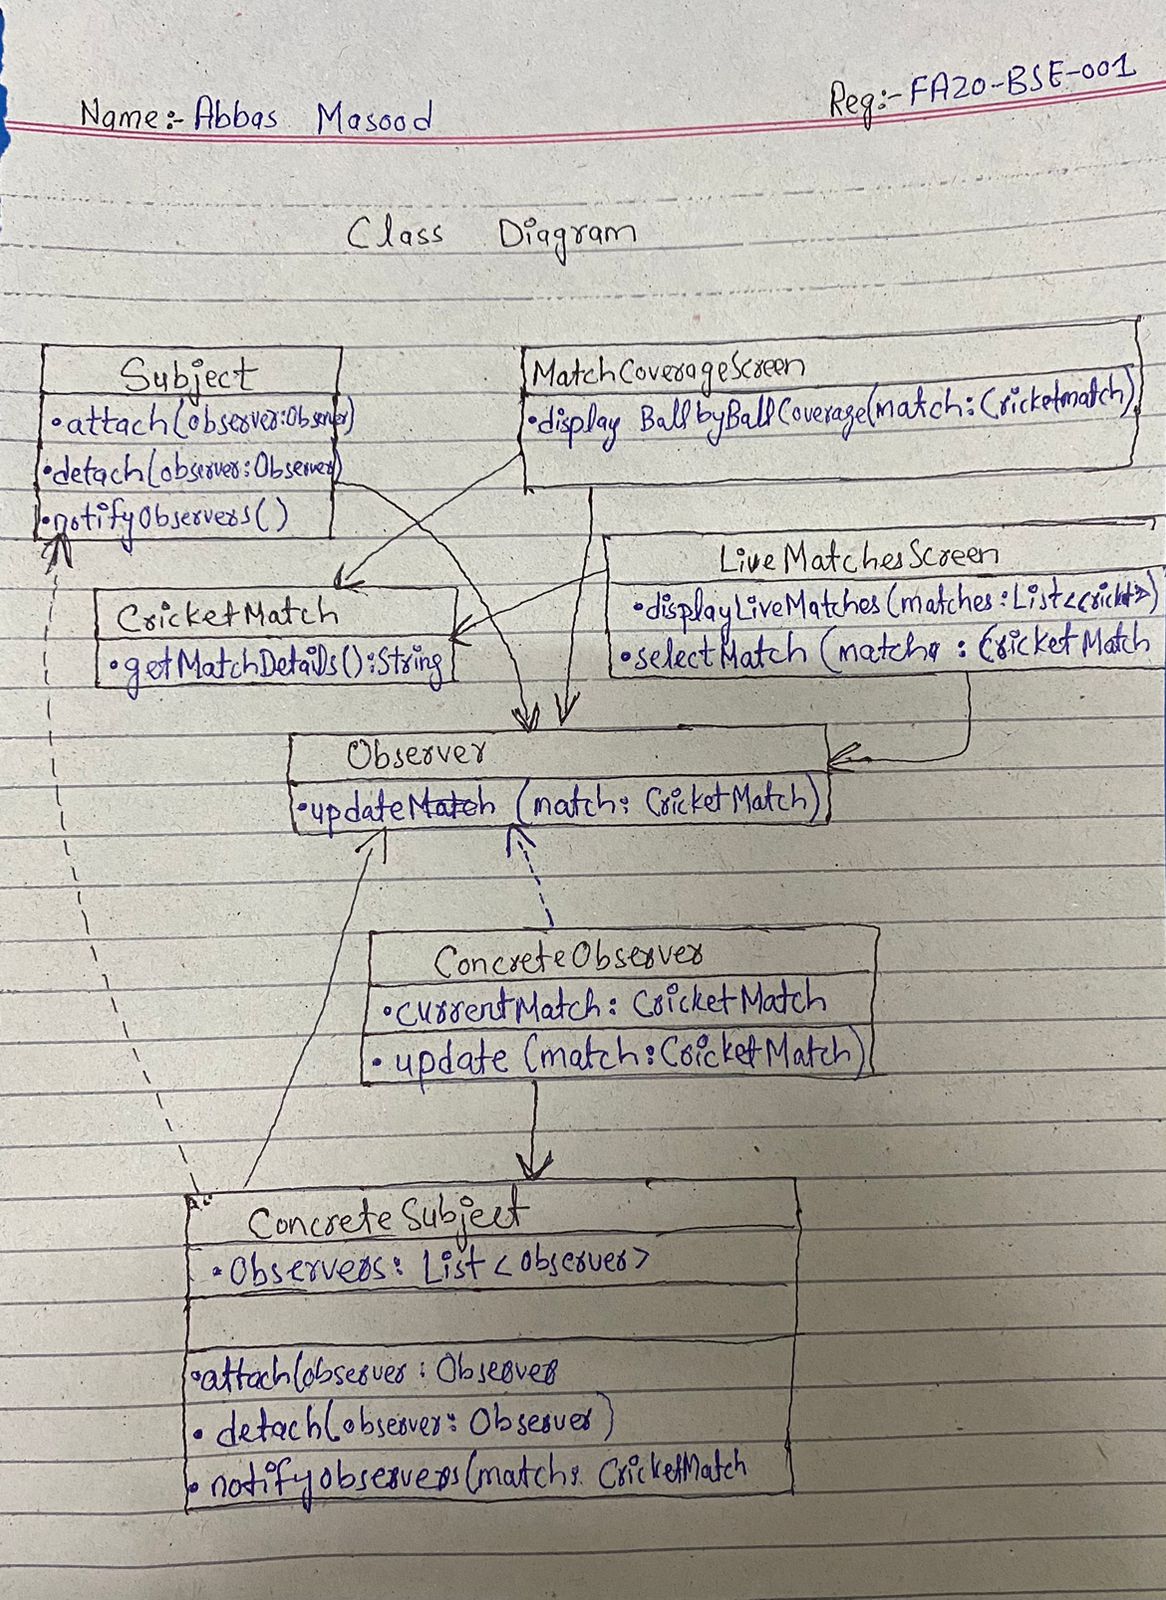 Name:- Abbas Masood
Reg:- FA20-BSE-001
Class Diagram
Subject
•attach(observer:Observer)
•detach(observer:Observer)
•notifyObservers()
MatchCoverageScreen
•display BallbyBallCoverage(match:Cricketmatch)
LiveMatchesScreen
•displayLiveMatches(matches:List<Cricket>)
•selectMatch (match : CricketMatch
CricketMatch
•getMatchDetails():String
Observer
•updateMatch (match: CricketMatch)
ConcreteObserver
•currentMatch: CricketMatch
•update (match:CricketMatch)
ConcreteSubject
•Observers: List<observer>
•attach(observer: Observer
•detach(observer: Observer)
•notifyobservers(match: CricketMatch